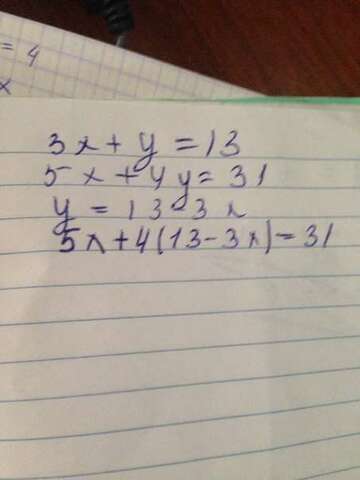 = 4
x
3x + y = 13
5x + 4y = 31
y = 13-3x
5x+4(13-3x)=31